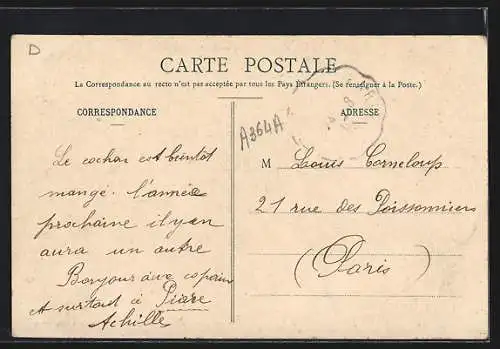 D
CARTE POSTALE
La Correspondance au recto n'est pas acceptée par tous les Pays Étrangers. (Se renseigner à la Poste.)
CORRESPONDANCE
ADRESSE
A364A
Le cochon est bientôt
mangé. l'année
prochaine il y en
aura un autre
Bonjour aux copain
et surtout à Piare
Achille
M Louis Corneloup
21 rue des Poissonniers
(Paris)